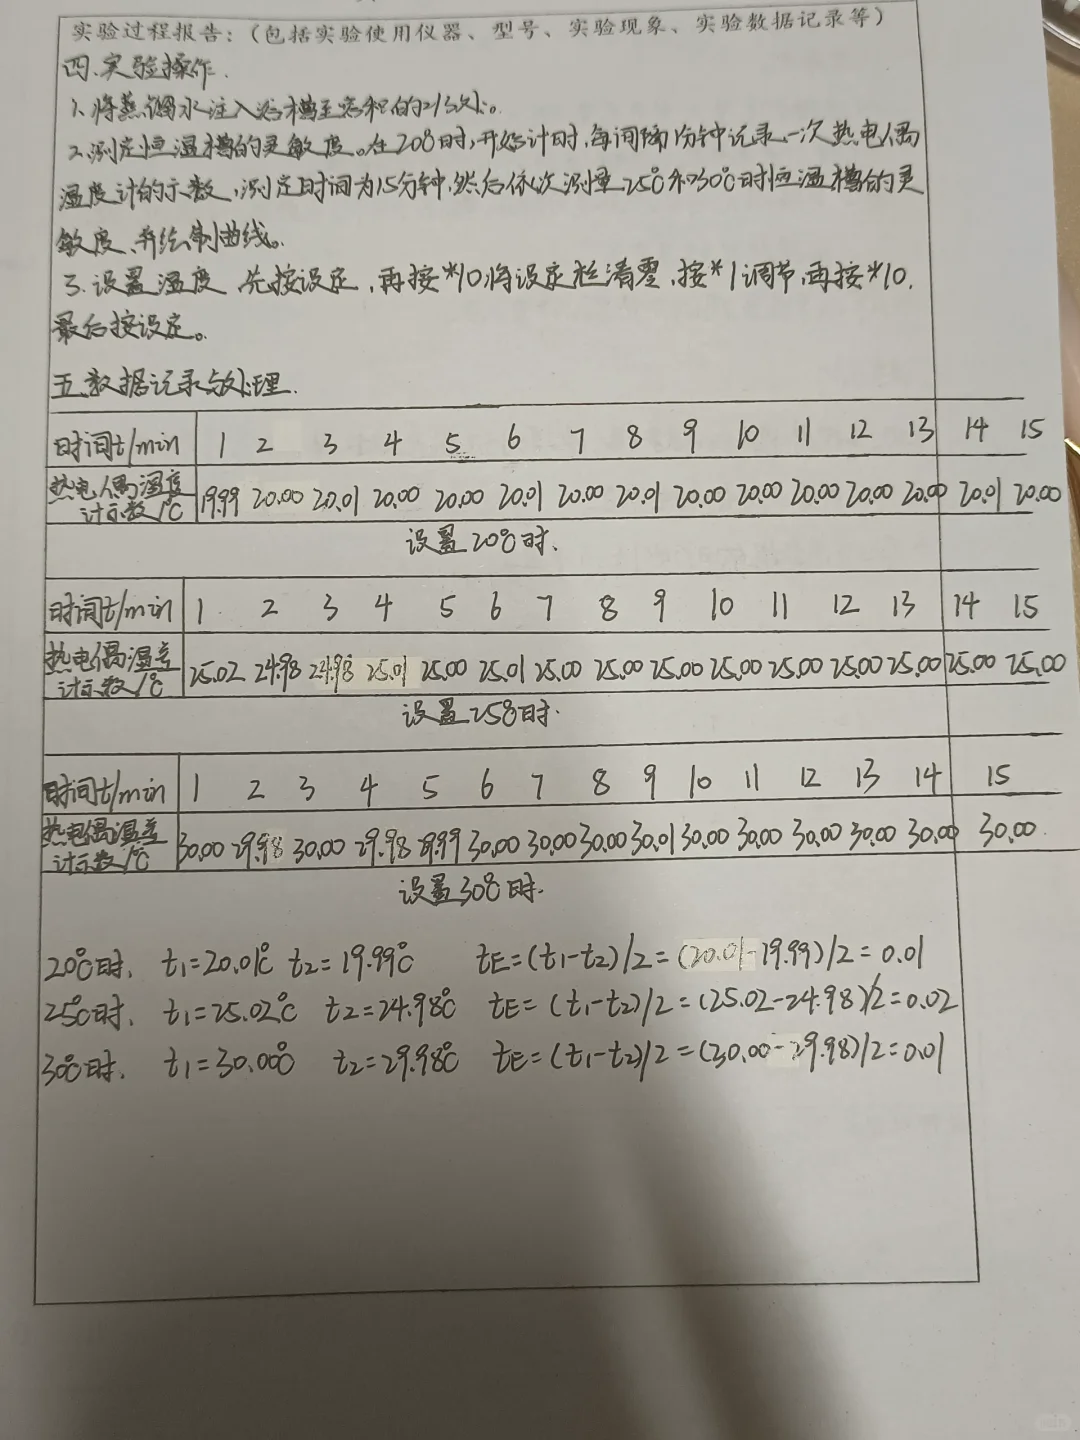 实验过程报告:(包括实验使用仪器、型号、实验现象、实验数据记录等)
四.实验操作.
1.将蒸馏水注入浴槽至容积的2/3处。
2.测定恒温槽的灵敏度。在20℃时,开始计时,每间隔1分钟记录一次热电偶
温度计的示数,测定时间为15分钟,然后依次测量25℃和30℃时恒温槽的灵
敏度,并绘制曲线。
3.设置温度 先按设定,再按*10,将设定栏清零,按*1调节,再按*10,
最后按设定。
五.数据记录与处理.
时间t/min 1 2 3 4 5 6 7 8 9 10 11 12 13 14 15
热电偶温度计示数/℃ 19.99 20.00 20.01 20.00 20.00 20.01 20.00 20.01 20.00 20.00 20.00 20.00 20.00 20.01 20.00
设置20℃时.
时间t/min 1 2 3 4 5 6 7 8 9 10 11 12 13 14 15
热电偶温差计示数/℃ 25.02 24.98 24.98 25.01 25.00 25.01 25.00 25.00 25.00 25.00 25.00 25.00 25.00 25.00 25.00
设置25℃时.
时间t/min 1 2 3 4 5 6 7 8 9 10 11 12 13 14 15
热电偶温差计示数/℃ 30.00 29.98 30.00 29.98 29.99 30.00 30.00 30.00 30.01 30.00 30.00 30.00 30.00 30.00 30.00
设置30℃时.
20℃时. t1=20.01℃ t2=19.99℃ tE=(t1-t2)/2=(20.01-19.99)/2=0.01
25℃时. t1=25.02℃ t2=24.98℃ tE=(t1-t2)/2=(25.02-24.98)/2=0.02
30℃时. t1=30.00℃ t2=29.98℃ tE=(t1-t2)/2=(30.00-29.98)/2=0.01